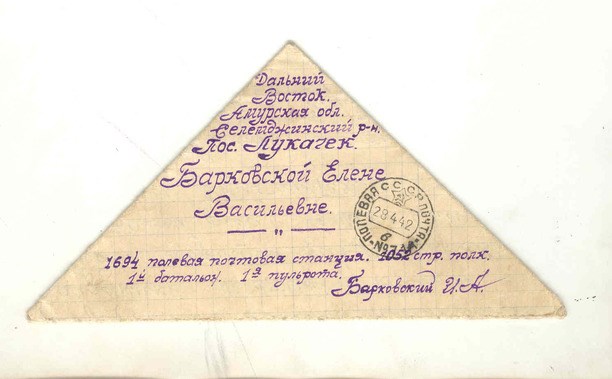 Дальний
Восток.
Амурская обл.
Селемджинский р-н.
Пос. Лукачек.
Барковской Елене
Васильевне.
— " —
1694 полевая почтовая станция. 1052 стр. полк.
1й баталион. 1я пульрота.
Барковский И.А.
ПОЛЕВАЯ ПОЧТА
СССР
28 4 42
б